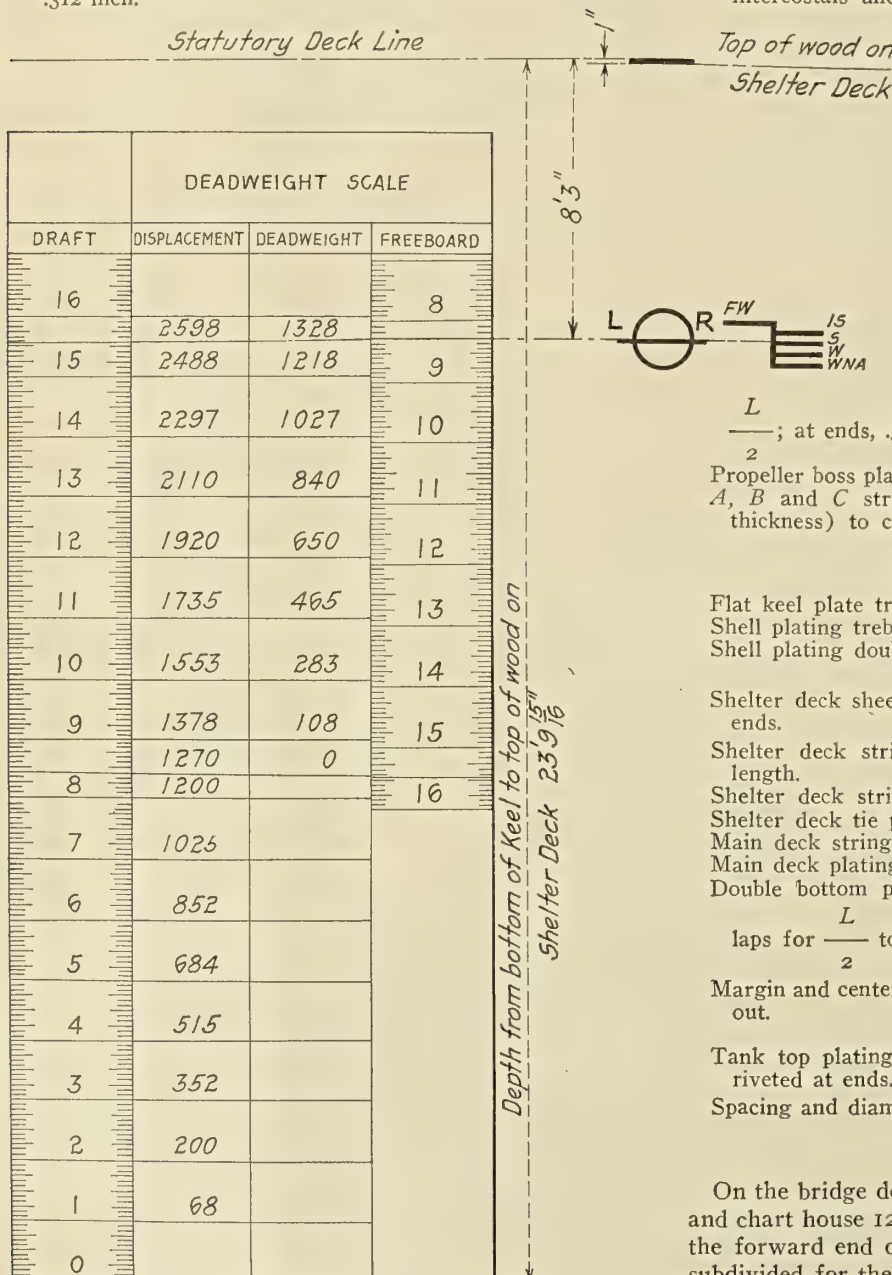 .312 inch.
Statutory Deck Line
1"
Top of wood on
Shelter Deck
8'3"
DEADWEIGHT SCALE
DRAFT DISPLACEMENT DEADWEIGHT FREEBOARD
16 8
2598 1328
15 2488 1218 9
14 2297 1027 10
13 2110 840 11
12 1920 650 12
11 1735 465 13
10 1553 283 14
9 1378 108 15
1270 0
8 1200 16
7 1025
6 852
5 684
4 515
3 352
2 200
1 68
0
Depth from bottom of Keel to top of wood on
Shelter Deck 23' 9 15/16"
L R FW IS
S
W
WNA
L
; at ends,
2
Propeller boss
A, B and C
thickness) to
Flat keel plate
Shell plating
Shell plating
Shelter deck
ends.
Shelter deck
length.
Shelter deck
Shelter deck tie
Main deck
Main deck
Double bottom
L
laps for
2
Margin and
out.
Tank top plating
riveted at ends.
Spacing and
On the bridge
and chart house
the forward end
subdivided for the